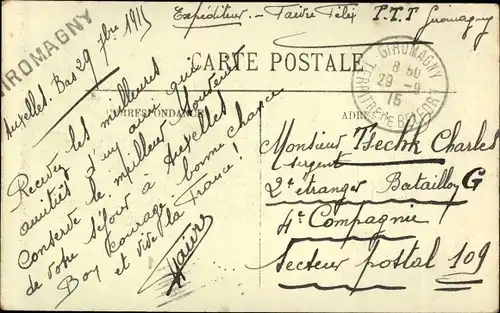 GIROMAGNY
Expéditeur - Faivre Félix P.T.T Giromagny
Auxelles. Bas 29 7bre 1915
CARTE POSTALE
GIROMAGNY
8 50
29 - 9
15
TERRITRE DE BELFORT
CORRESPONDANCE
ADRESSE
Recevez les meilleures
amitiés d'un ami qui
conserve le meilleur souvenir
de votre séjour à Auxelles
Bon courage, bonne chance
et vive la France!
Faivre
Monsieur Tschk Charles
sergent
2e étranger Bataillon G
4e Compagnie
Secteur postal 109